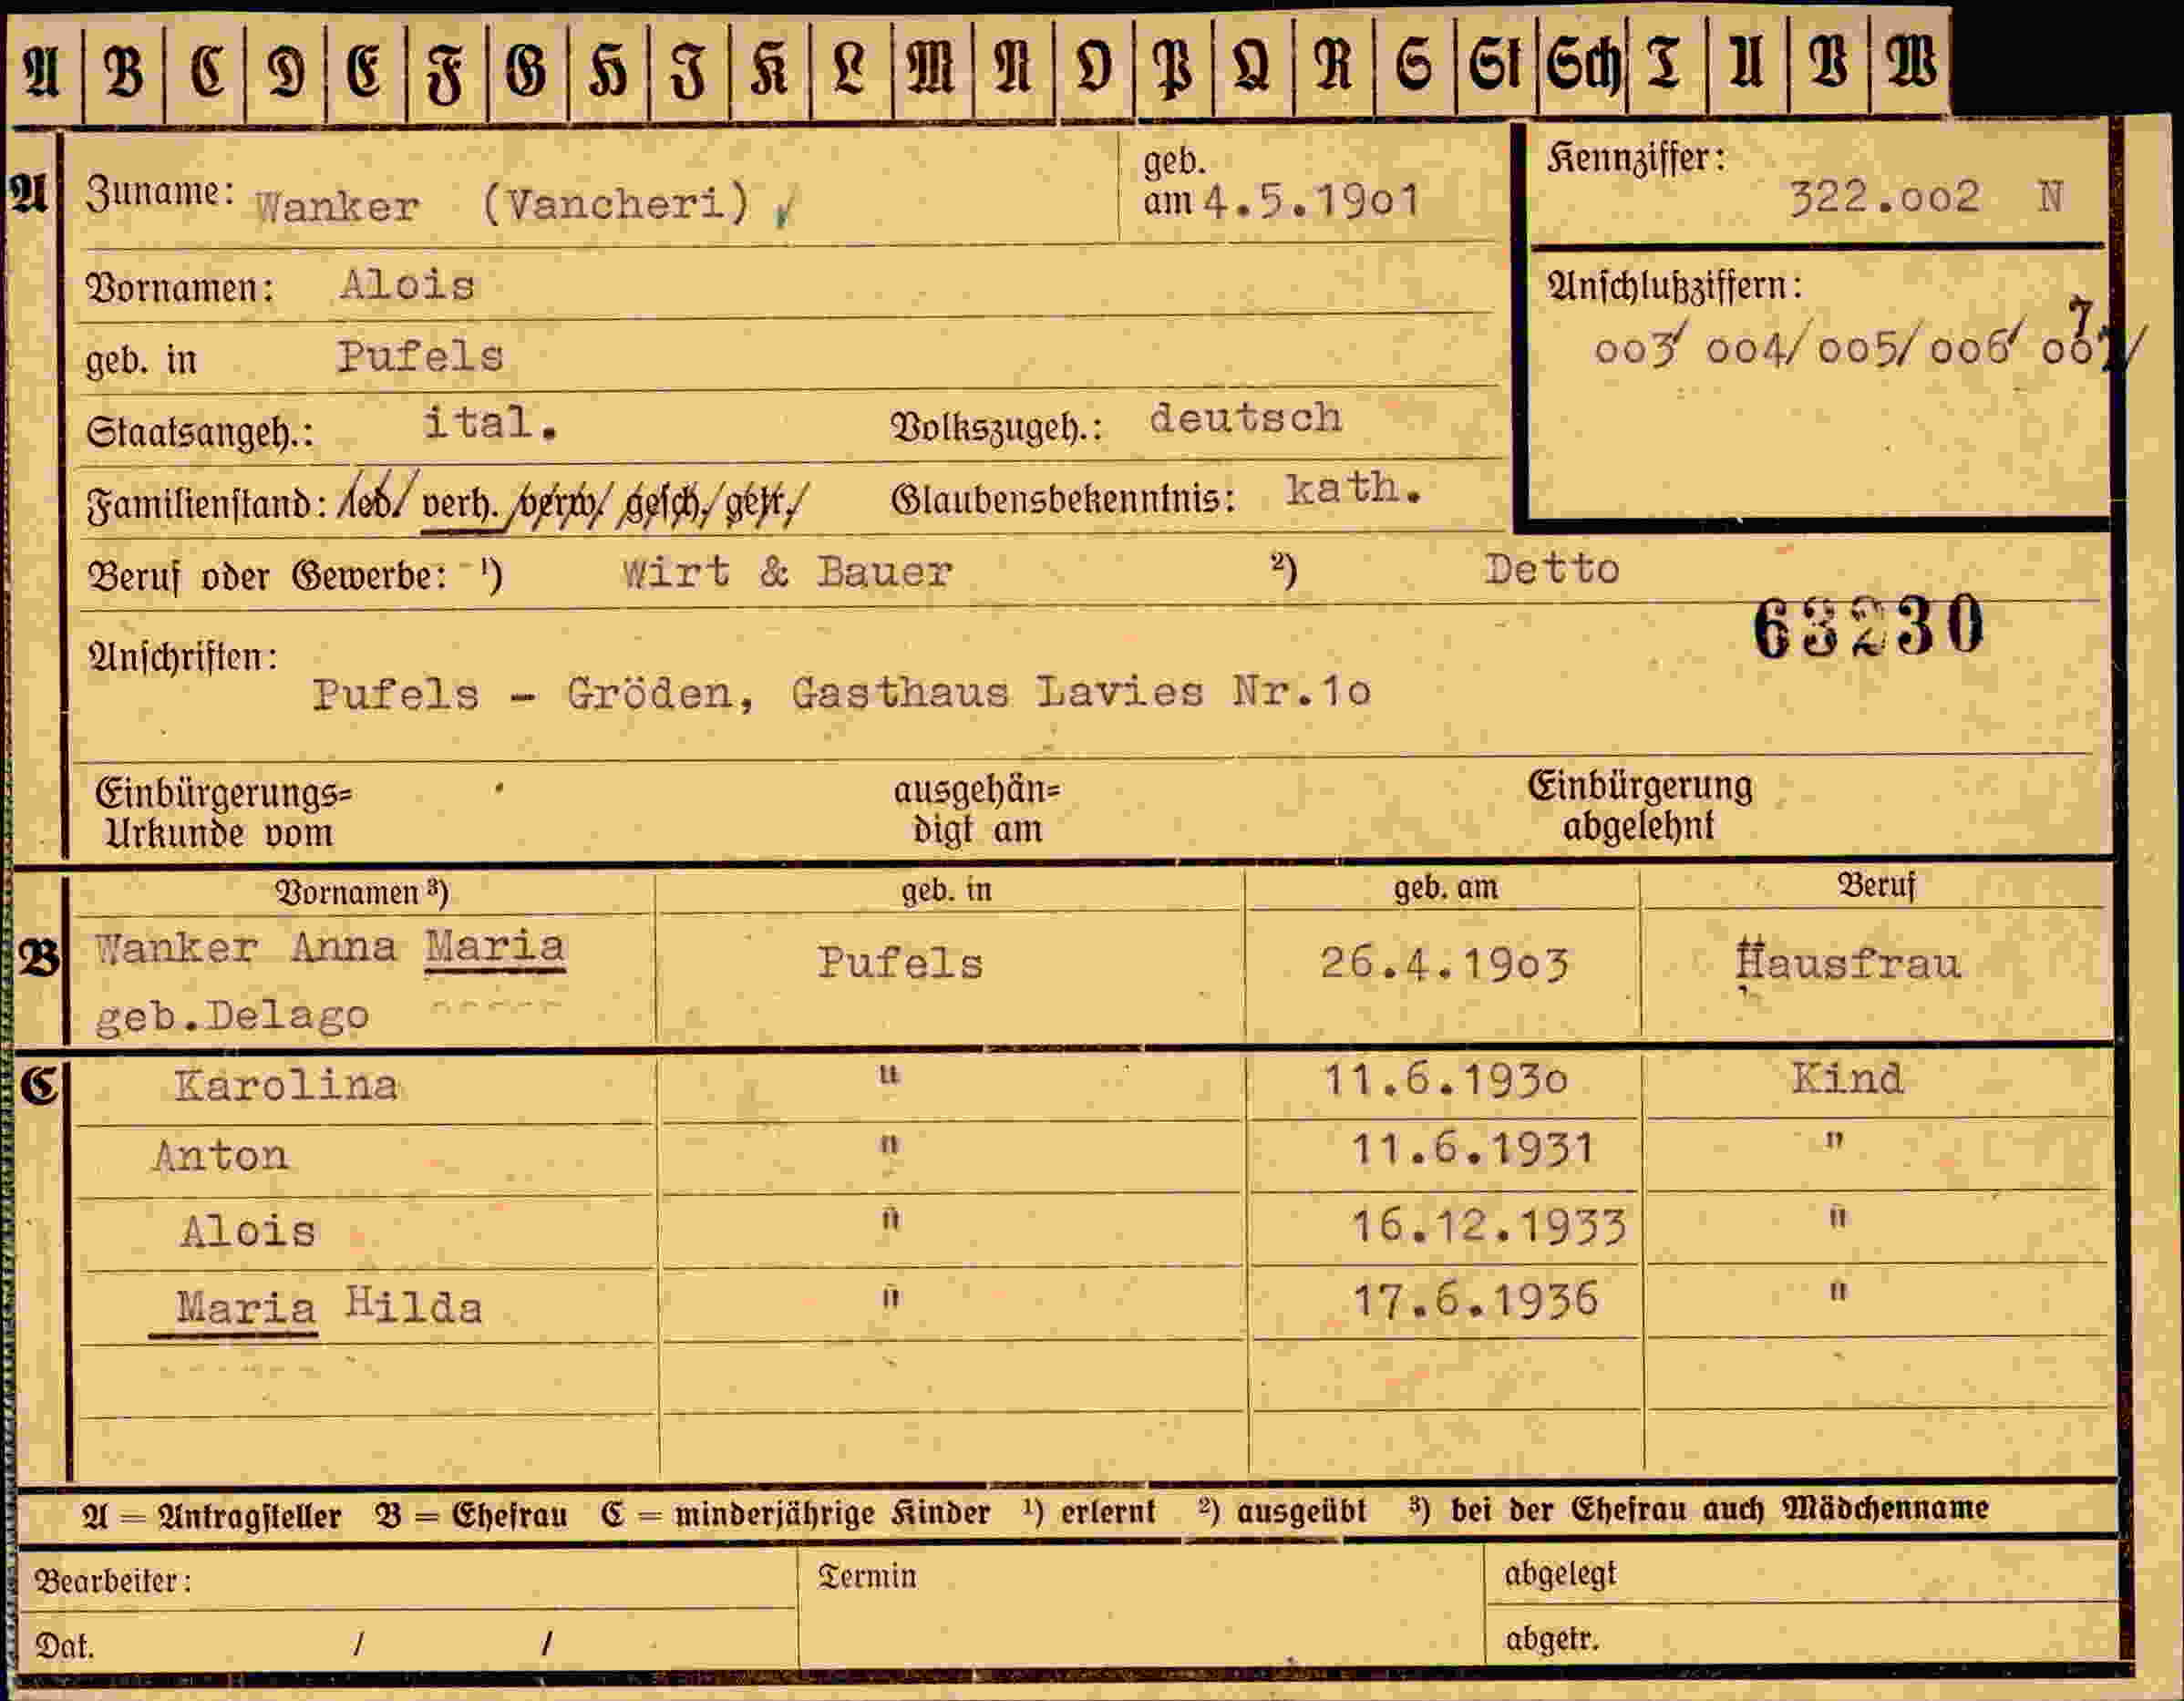 A B C D E F G H J K L M N O P Q R S St Sch T U V W
A Zuname: Wanker (Vancheri) geb. am 4.5.19o1 Kennziffer: 322.oo2 N
Vornamen: Alois Anschlußziffern:
geb. in Pufels oo3/ oo4/ oo5/ oo6/ oo7/
Staatsangeh.: ital. Volkszugeh.: deutsch
Familienstand: led./ verh. /verw/ gesch./ getr./ Glaubensbekenntnis: kath.
Beruf oder Gewerbe: ¹) Wirt & Bauer ²) Detto
63230
Anschriften:
Pufels - Gröden, Gasthaus Lavies Nr.1o
Einbürgerungs= ausgehän= Einbürgerung
Urkunde vom digt am abgelehnt
Vornamen ³) geb. in geb. am Beruf
B Wanker Anna Maria Pufels 26.4.19o3 Hausfrau
geb.Delago
C Karolina " 11.6.193o Kind
Anton " 11.6.1931 "
Alois " 16.12.1933 "
Maria Hilda " 17.6.1936 "
A = Antragsteller B = Ehefrau C = minderjährige Kinder ¹) erlernt ²) ausgeübt ³) bei der Ehefrau auch Mädchenname
Bearbeiter: Termin abgelegt
Dat. / / abgetr.